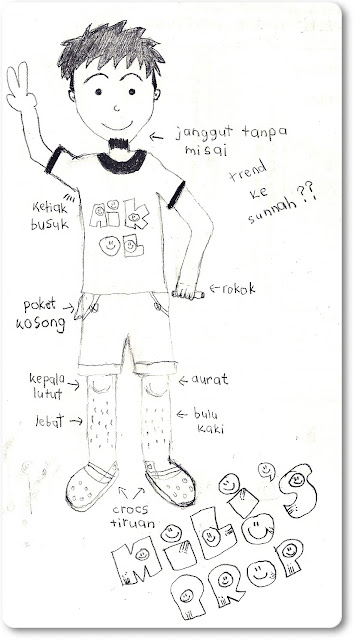 janggut tanpa
misai
trend
ke
sunnah??
ketiak
busuk
rokok
poket
kosong
kepala
lutut
aurat
lebat
bulu
kaki
crocs
tiruan
PROP